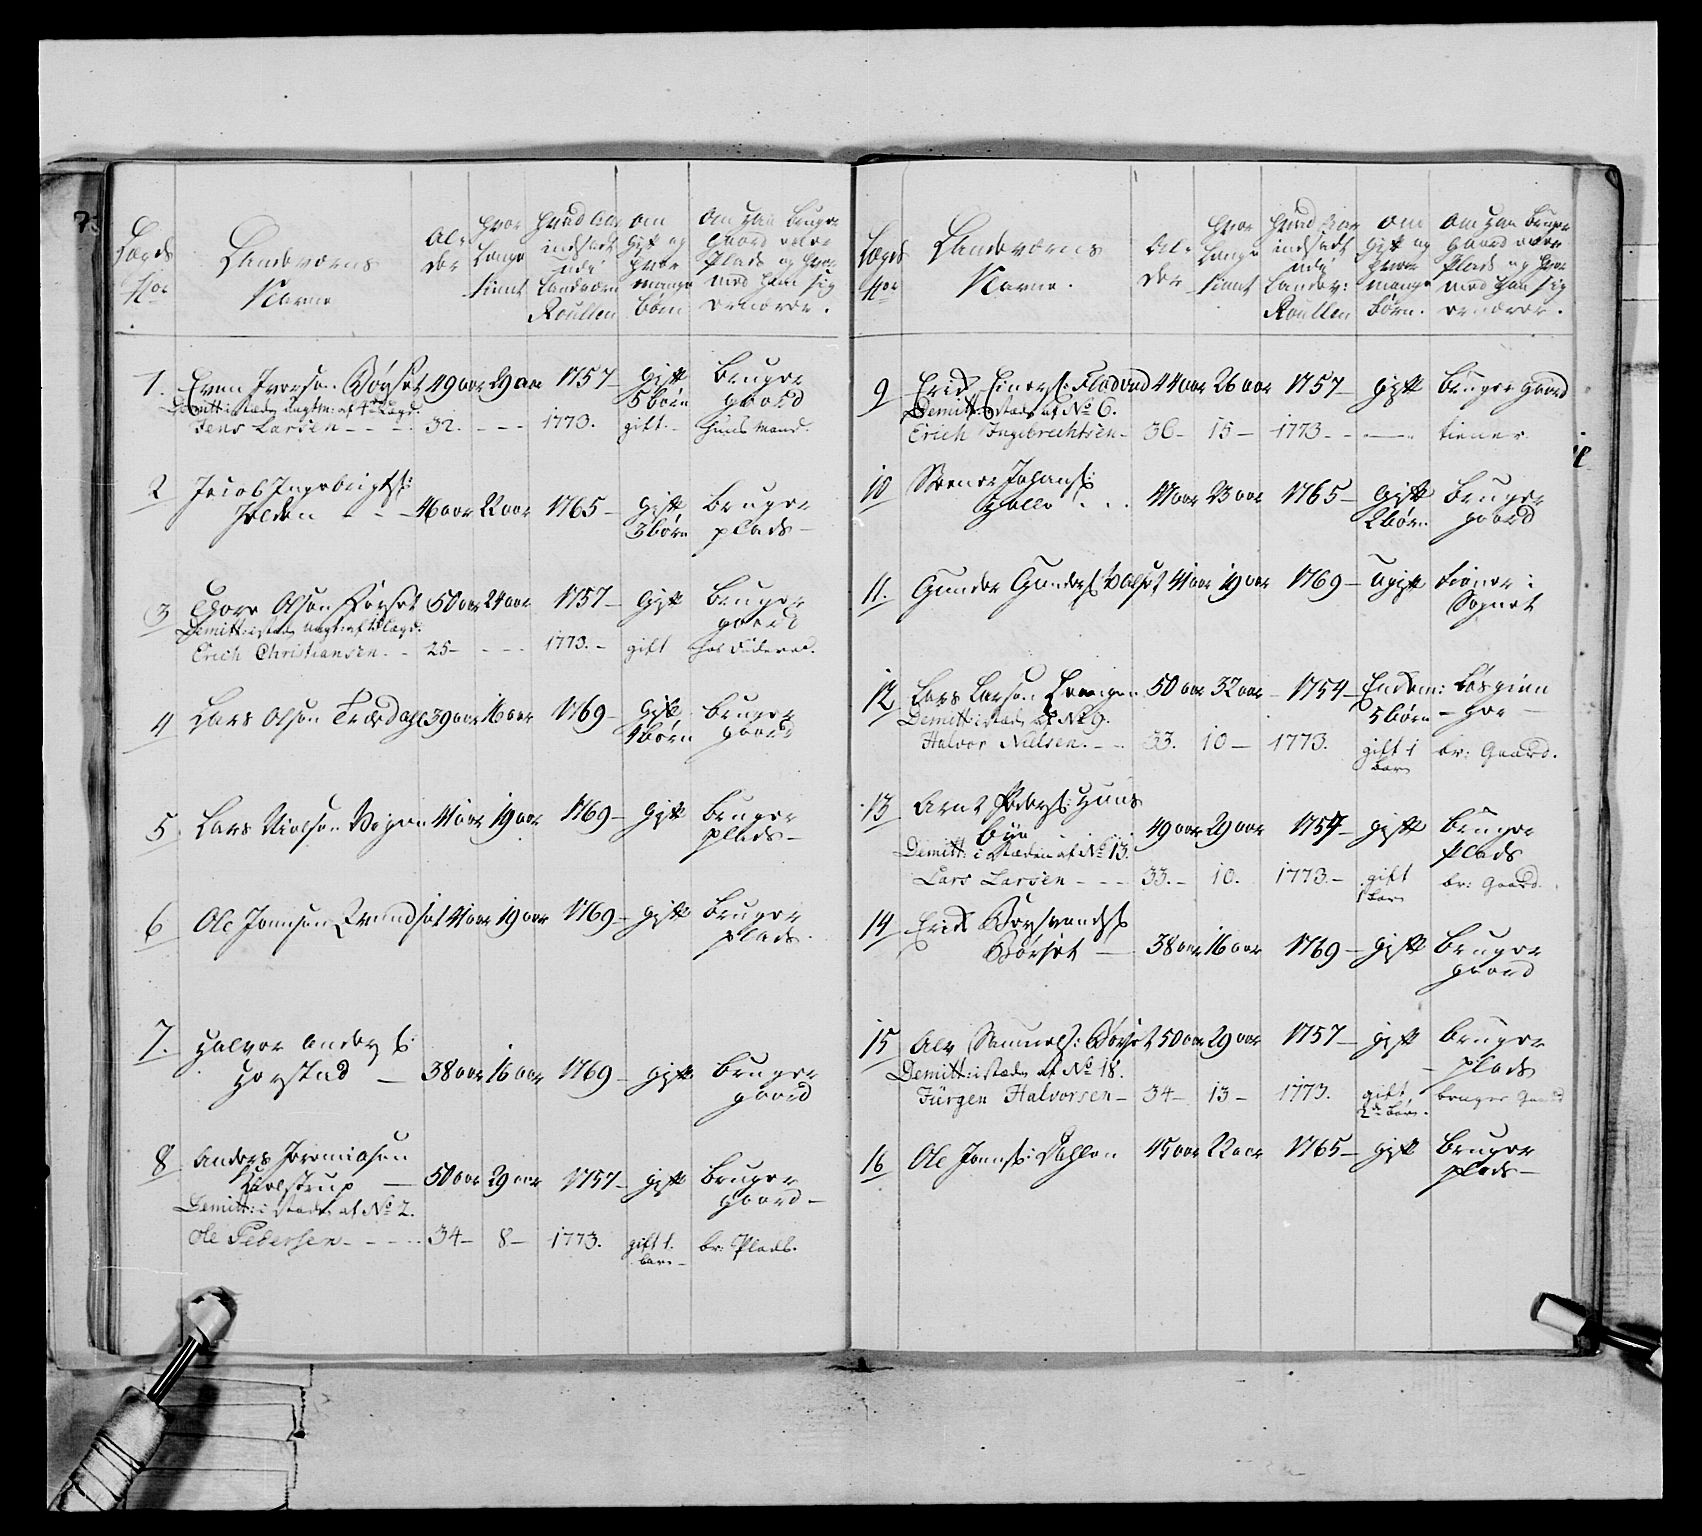 Lægds
Nor
Landeværns
Navne
Al-
der
hvor
længe
tient
hvad Aar
indsadt
udi
Landværn
Roullen
om
gift og
hvor
mange
børn
om han bruger
gaard eller
plads og hvor
med han sig
ernærer.
1. Even Iversen 49 aar 29 aar 1757 – gift bruger
5 børn gaard
Demitt: i stæden af 4de Lægd.
Jens Larsen – – – 32. – – – 1773. gift – huusmand.
2 Jacob Ingebrigts:
– – 46 aar 22 aar 1765 – gift bruger
3 børn plads –
3 Tore Olsen 50 aar 24 aar 1757 – gift bruger
gaard
Demitt: i stæden af Lægd.
Erich Christiansen. – 25 – – – – 1773. – gift hos
4 Lars Olsen 39 aar 16 aar 1769 – gift bruger
børn gaard
5. Lars Nielsen 41 aar 19 aar 1769 – gift bruger
plads –
6 Ole Jonsen 41 aar 19 aar 1769 – gift bruger
plads.
7. Halvor Anders:
Horstad – 38 aar 16 aar 1769 – gift bruger
gaard
8 Anders Jeremiasen
– 50 aar 29 aar 1757 – gift bruger
gaard –
Demitt: i stæden af No 2.
Ole Pedersen – – – – 34 – 8 – 1773. gift 1. br: Plads.
barn –
Lægds
Nor
Landeværns
Navne.
Al-
der
hvor
længe
tient
hvad Aar
indsadt
udi
Landev:
Roullen
om
gift og
hvor
mange
børn.
om han bruger
gaard eller
plads og hvor
med han sig
ernærer.
9 Erich Einers: 44 aar 26 aar 1757 – gift bruger gaard
Demitt: i stæd: af No 6.
Erich Ingebrechtsen – 36 – 15 – 1773 – – – tiener.
10 Johans:
. . . 47 aar 23 aar 1765 – gift bruger
2 børn gaard
11. Gunder Gunders: 41 aar 19 aar 1769 – ugift tiener i
Sognet
12 Lars Larsen 50 aar 32 aar – 1754 –
5 børn
Demitt: i stæden af No 9.
Halvor Nielsen. – – 33. 10 – 1773. gift 1 br: Gaard.
barn
13 Arnt Peders: Huus
bye 49 aar 29 aar 1757 – gift bruger
plads
Demitt: i Stæden af No 13.
Lars Larsen – – – 33. – 10. 1773. – gift br: Gaard.
1 barn
14 Erich
Børset – 38 aar 16 aar 1769 – gift bruger
gaard
15 Ole Samuels: Børset 50 aar 29 aar 1757 – gift bruger
– plads
Demitt: i stæden af No 18.
Jürgen Halvorsen – 34 – 13 – 1773. gift bruger Gaard
2de børn.
16 Ole Jonns: Dahlen 45 aar 22 aar 1765 – gift bruger
plads –